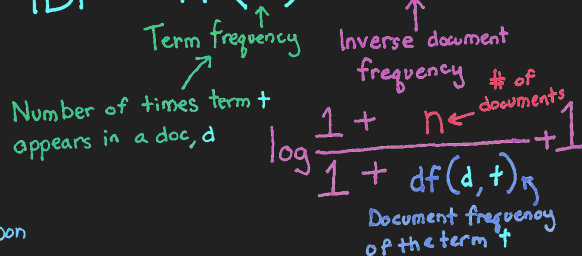 Term frequency
Inverse document
frequency
Number of times term t
appears in a doc, d
# of
documents
log 1 + n / 1 + df(d, t) + 1
Document frequency
of the term t